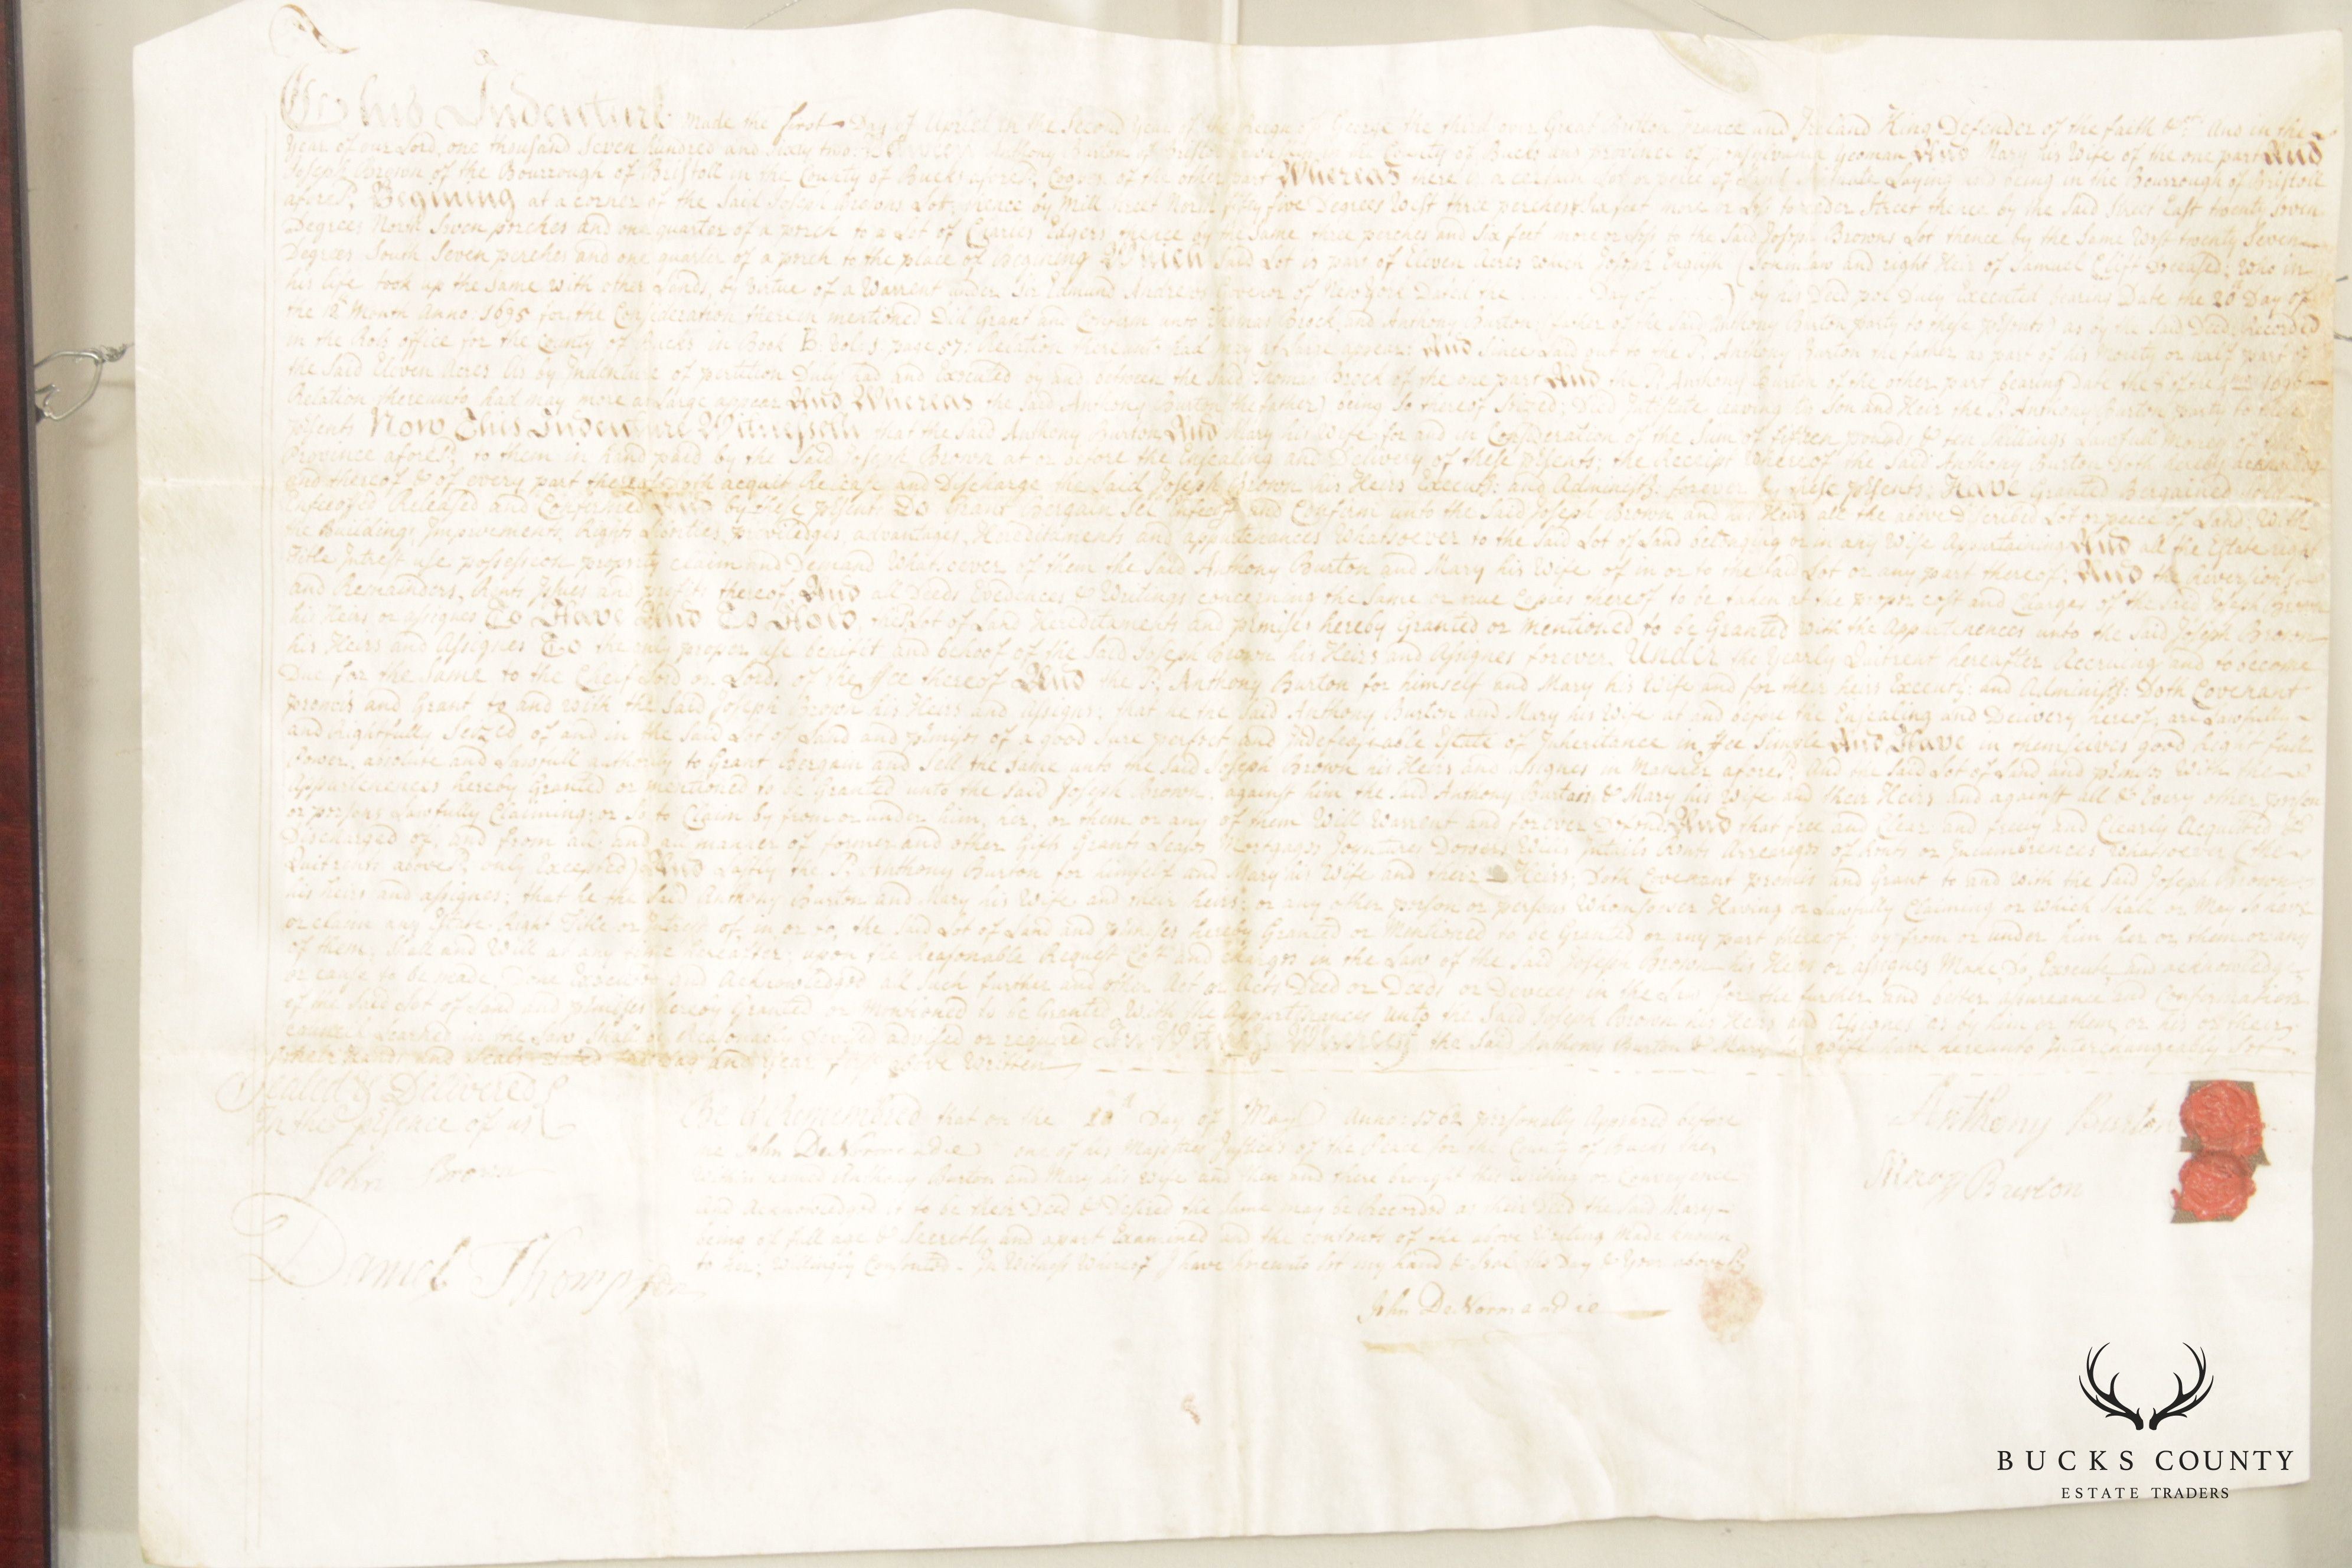 This Indenture Made the first Day of Aprill in the Second Year of the Reign of George the third over Great Britton France and Ireland King Defender of the faith &c And in the
Year of our Lord, one thousand Seven hundred and Sixty two: Anthony Burton of Bristol in the County of Bucks and province of Yeoman And Mary his Wife of the one part And
Joseph Brown of the Bourrough of Bristoll in the County of Bucks afores.d of the other part Whereas there is a certain Lot or peice of Land Situate Laying and being in the Bourrough of Bristoll
afores.d Begining at a corner of the Said Joseph Browns Lot thence by Mill street North fifty five Degrees West three perches feet more or Less to Ceder Street thence by the Said Street East twenty Seven
Degrees North Seven perches and one quarter of a perch to a Lot of Charles Edgers thence by the Same three perches and Six feet more or Less to the Said Joseph Browns Lot thence by the Same West twenty Seven
Degrees South Seven perches and one quarter of a perch to the place of Begining Which Said Lot is part of Eleven Acres which Joseph English (Soninlaw and right Heir of Samuel Clift Deceased: Who in
his life took up the Same with other Lands, by Virtue of a Warrent under Sir Edmund Andrews Govenor of New York Dated the Day of ) by his Deed pol Duly Executed bearing Date the 20 Day of
the 12 Month Anno 1695 for the Consideration therein mentioned Did Grant and Confirm unto Thomas Brock and Anthony Burton (father of the Said Anthony Burton party to these psents) as by the Said Deed: Recorded
in the Rols office for the County of Bucks in Book B page 57: Relation thereunto had may at Large appear: And Since Laid out to the S.d Anthony Burton the father as part of his Moiety or half part of
the Said Eleven Acres As by Indenture of partition Duly had and Executed by and between the Said Thomas Brock of the one part And the S.d Anthony Burton of the other part bearing date the 1696
Relation thereunto had may more at Large appear And Whereas the Said Anthony Burton (the father) being So thereof Seized: Died Intestate leaving to Son and Heir the S.d Anthony Burton party to these
psents Now This Indenture Witnesseth that the Said Anthony Burton And Mary his Wife for and in Consideration of the Sum of fifteen pounds & ten Shillings Lawfull Money of
Province afores.d to them in hand paid by the Said Joseph Brown at or before the Ensealing and Delivery of these psents: the Receipt Whereof the Said Anthony Burton Doth hereby
and thereof & of every part thereof Doth acquit Release and Discharge the Said Joseph Brown his Heirs and forever by these psents: Have Granted Bergained Sold
Enfeoffed Released and Confirmed And by these psents Do Grant Bergain Sel Enfeoff and Confirm unto the Said Joseph Brown and his Heirs all the above Discribed Lot or peice of Land: With
the Buildings Improvements Rights Liberties priviledges advantages Hereditaments and appurtenances Whatsoever to the Said Lot of Land belonging or in any Wise Appertaining And all the Estate right
Title Intrest use possession property claim and Demand Whatsoever of them the Said Anthony Burton and Mary his Wife of in or to the Said Lot or any part thereof: And the Reversions
and Remainders, Rents Issues and profits thereof And all Deeds Evedences & Writings concerning the Same or true Copies thereof to be taken at the proper cost and Charges of the Said Joseph Brown
his Heirs or assignes To Have And To Hold the Lot of Land Hereditaments and pmises hereby Granted or Mentioned to be Granted with the Appurtinences unto the Said Joseph Brown
his Heirs and Assignes To the only proper use benefit and behoof of the Said Joseph Brown his Heirs and Assignes forever Under the Yearly Quitrent hereafter Accruing and to become
Due for the Same to the Cheif Lord or Lords of the ffee thereof And the S.d Anthony Burton for himself and Mary his Wife and for their heirs and Doth Covenant
promis and Grant to and with the Said Joseph Brown his Heirs and Assigns: that he the Said Anthony Burton and Mary his Wife at and before the Ensealing and Delivery hereof, are Lawfully
and Rightfully Seized of and in the Said Lot of Land and pmises of a good Sure perfect and Indefeasable Estate of Inheritance in ffee Simple And Have in themselves good Right full
Power, absolute and Lawfull authority to Grant Bergain and Sell the Same unto the Said Joseph Brown his Heirs and assignes in Manner afores.d And the Said Lot of Land and pmises With the
Appurtenences hereby Granted or mentioned to be Granted unto the Said Joseph Brown, against him the Said Anthony Burtain & Mary his Wife and their Heirs and against all & Every other person
or persons Lawfully Claiming or to Claim by from or under him, her, or them or any of them Will Warrent and forever Defend And that free and Clear and freely and Clearly Acquited &
Discharged of, and from all and all manner of former and other Gifts Grants Leases Mortgages Jountures Dowers Wills Intails Rents Arrearages of Rents or Incumbrences Whatsoever (the
Quitrents above S.d only Excepted) And Lastly the S.d Anthony Burton for himself and Mary his Wife and their Heirs; Doth Covenant promis and Grant to and With the Said Joseph Brown
his heirs and assignes; that he the Said Anthony Burton and Mary his Wife and their heirs: or any other person or persons Whomsoever Having or Lawfully Claiming or which Shall or May So have
or claim any Estate Right Title or Intrest of, in or to, the Said Lot of Land and pmises hereby Granted or Mentioned to be Granted or any part thereof; by from or under him her or them or any
of them; Shall and Will at any time hereafter: upon the Reasonable Request Cost and charges in the Law of the Said Joseph Brown his Heirs or assignes Make Do, Execute and acknowledge
or cause to be made, Done Executed and Acknowledged all Such further and other Act or Acts Deed or Deeds or Devices in the Law for the further and better assureance and Confirmation
of the Said Lot of Land and pmises hereby Granted or Mentioned to be Granted With the Appurtinances Unto the Said Joseph Brown his Heirs and Assignes as by him or them or his or their
Councel Learned in the Law Shall be Reasonably Devised advised or required In Witness Whereof the Said Anthony Burton & Mary his Wife have hereunto Interchangeably Set
their Hands and Seals Dated the Day and Year first above Written
Sealed & Delivered
In the psence of us
John Brown
Daniel Thompson
Be it Remembred that on the 20 Day of May Anno: 1762 personally Appeared before
me John DeNormandie one of his Majesties Justices of the Peace for the County of Bucks the
Within named Anthony Burton and Mary his Wife and then and there brought this writing or Conveyence
and Acknowledged it to be their Deed & Desired the Same may be Recorded as their Deed the Said Mary
being of full age & Secretly and apart Examined and the contents of the above Writing Made known
to her; Willingly Consented. In Witness Whereof I have hereunto Set my hand & Seal the Day & Year above S.d
John DeNormandie
Anthony Burton
Mary Burton
BUCKS COUNTY
ESTATE TRADERS